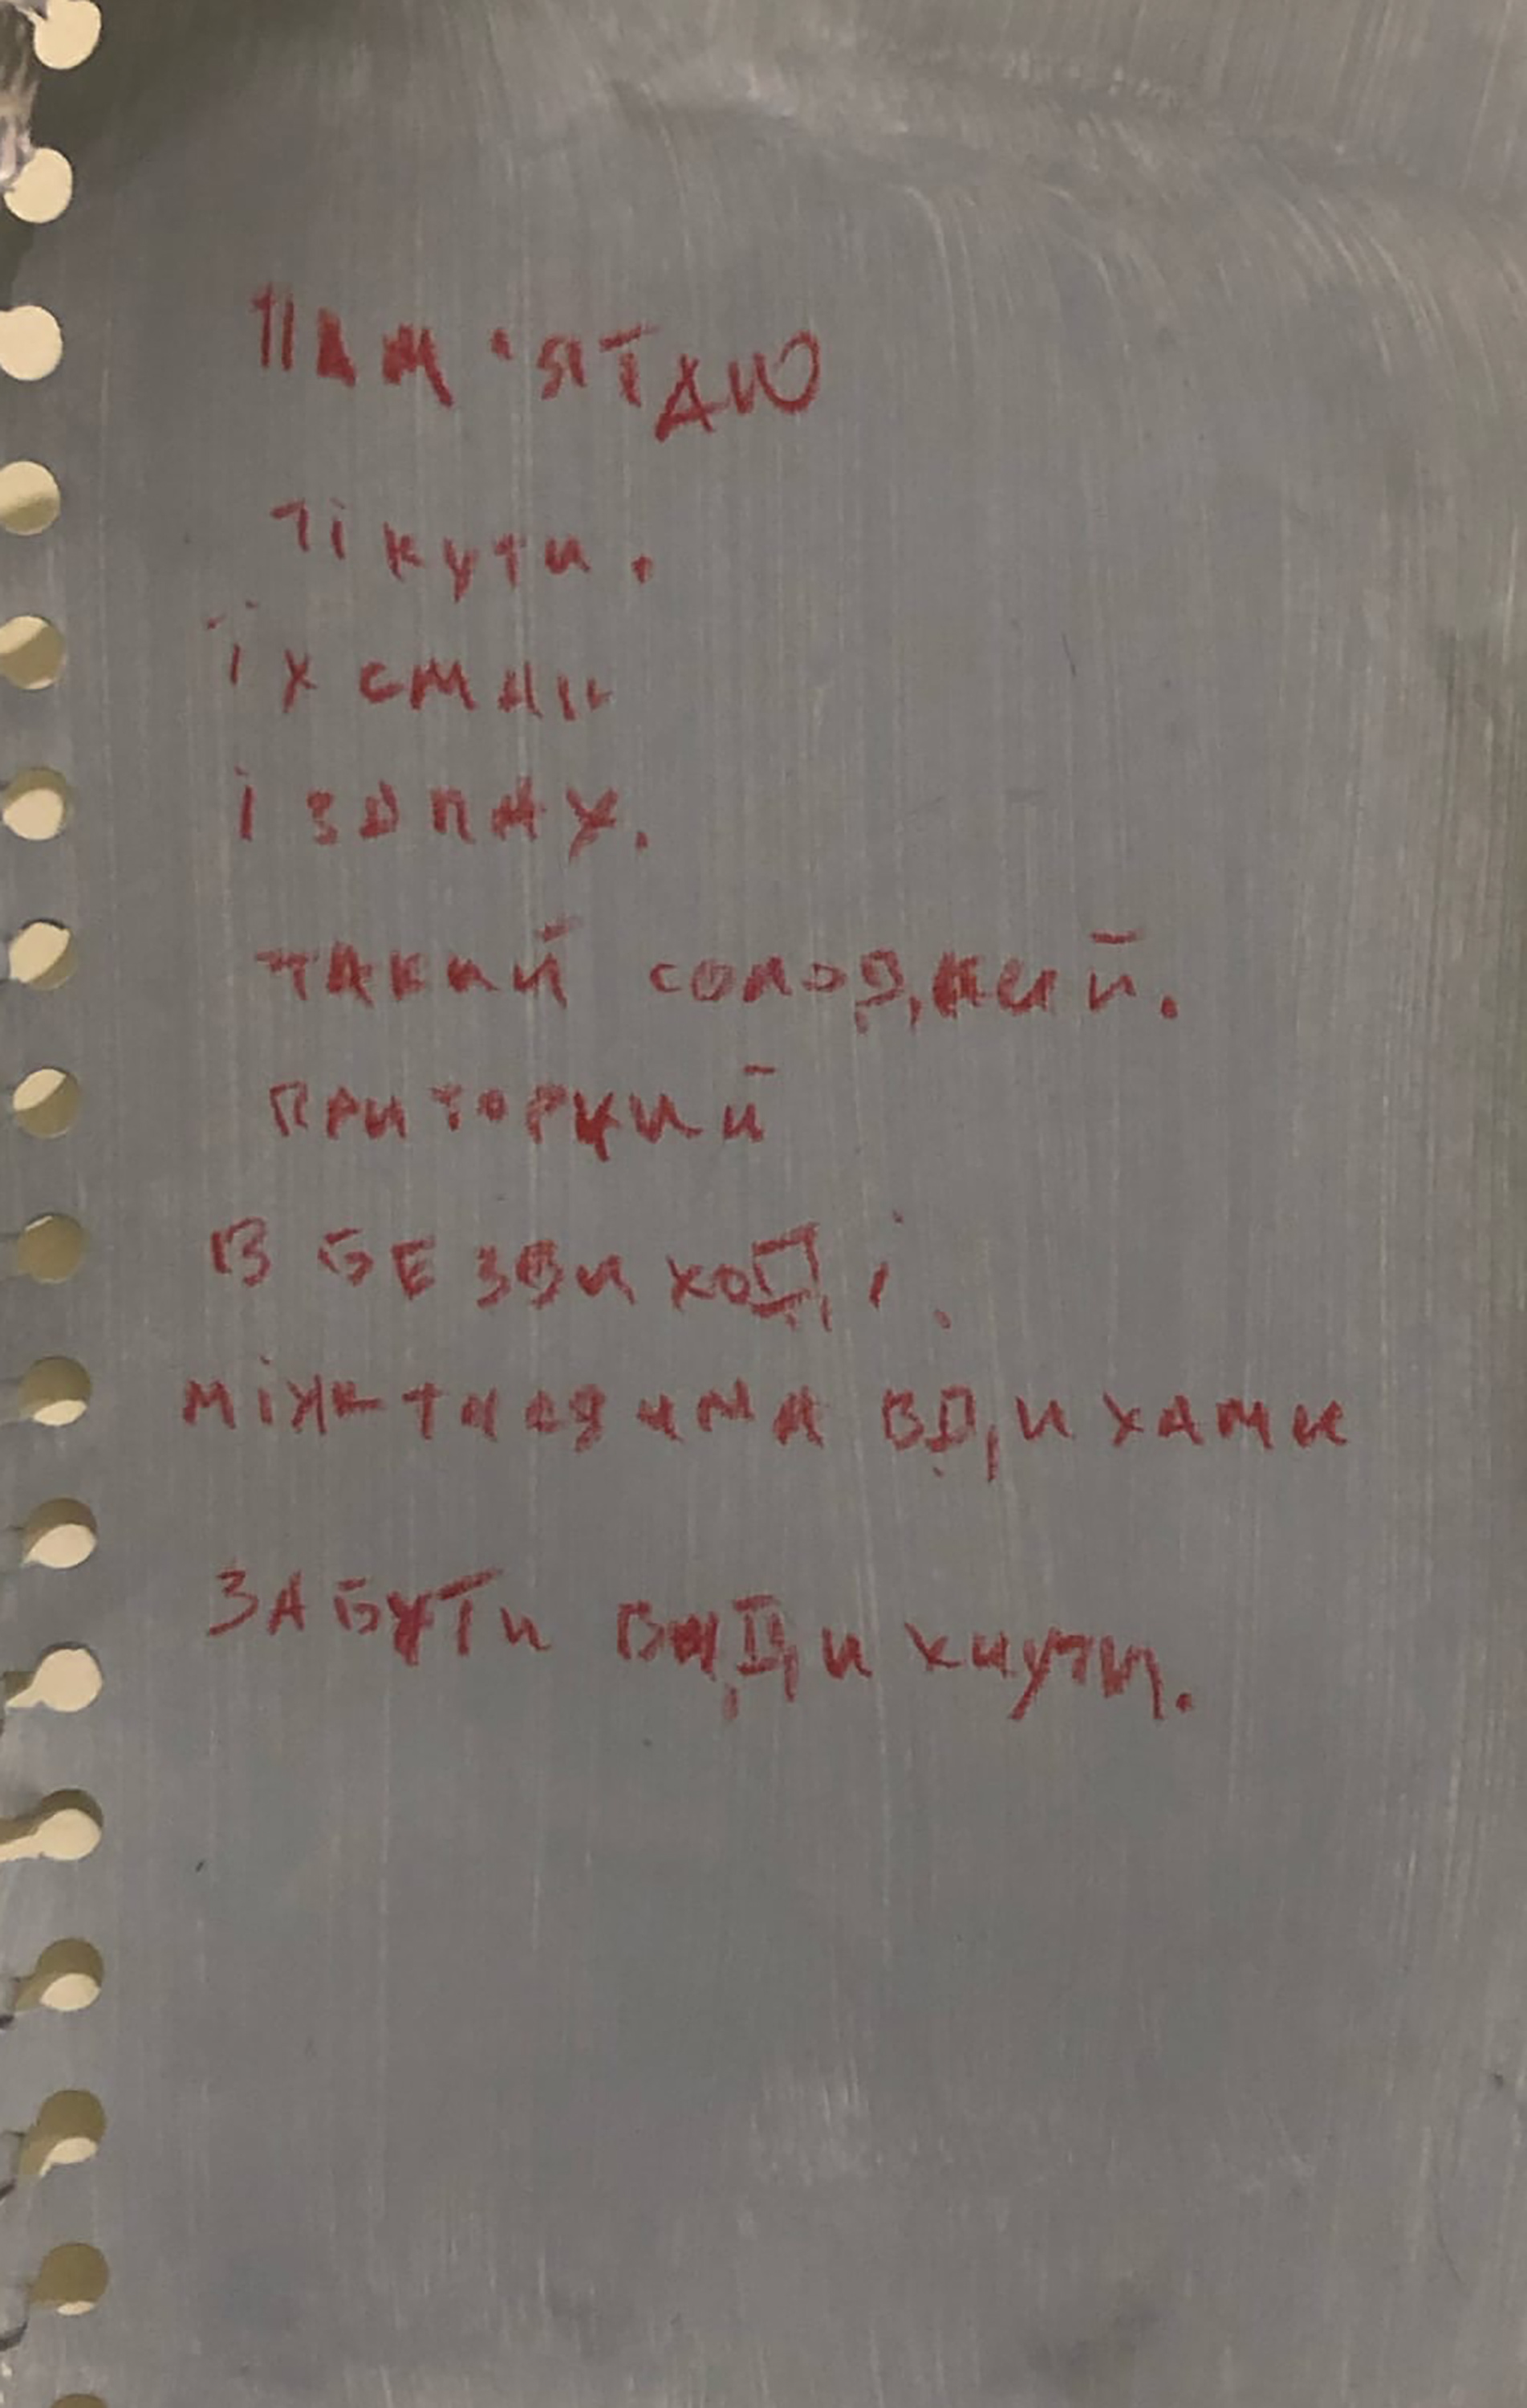 ПАМ'ЯТАЮ
ті кути.
їх смак
і запах.
такий солодкий.
приторний
в безвиході.
між твоїма вдихами
забути видихнути.